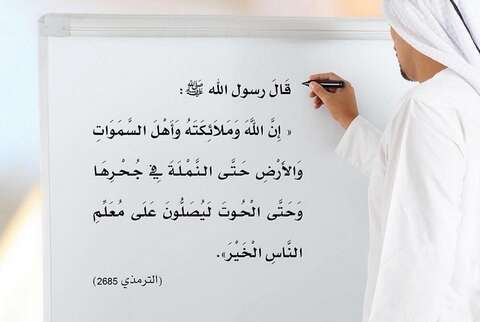 قَالَ رسول الله ﷺ :
« إِنَّ اللَّهَ وَمَلَائِكَتَهُ وَأَهْلَ السَّمَوَاتِ
وَالأَرْضِ حَتَّى النَّمْلَةَ فِي جُحْرِهَا
وَحَتَّى الْحُوتَ لَيُصَلُّونَ عَلَى مُعَلِّمِ
النَّاسِ الْخَيْرَ».
(الترمذي 2685)